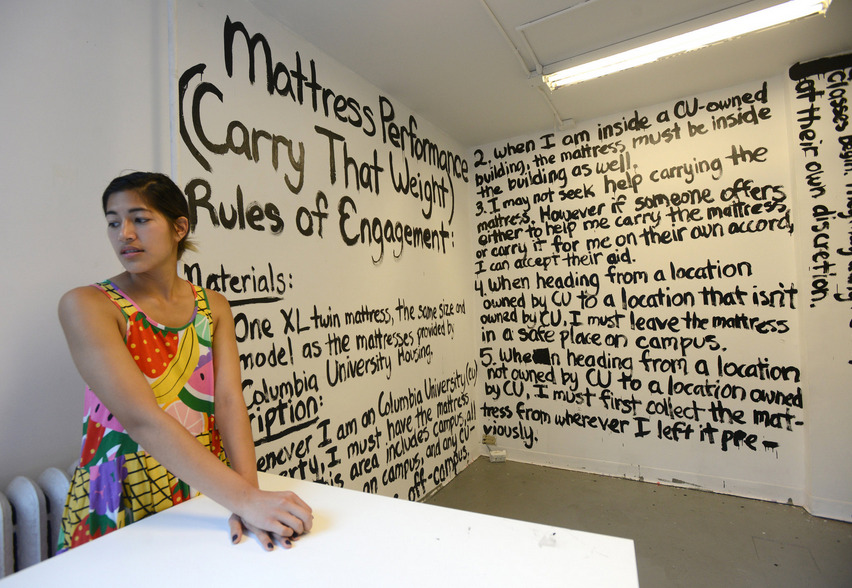 Mattress Performance
(Carry That Weight)
Rules of Engagement:
Materials:
One XL twin mattress, the same size and
model as the mattresses provided by
Columbia University Housing.
cription:
enever I am on Columbia University (CU)
erty, I must have the mattress
is area includes campus, all
on campus, and any CU-
off-campus.
2. When I am inside a CU-owned
building, the mattress must be inside
the building as well.
3. I may not seek help carrying the
mattress. However if someone offers
either to help me carry the mattress,
or carry it for me on their own accord,
I can accept their aid.
4. When heading from a location
owned by CU to a location that isn't
owned by CU, I must leave the mattress
in a safe place on campus.
5. When heading from a location
not owned by CU to a location owned
by CU, I must first collect the mat-
tress from wherever I left it pre-
viously.
Classes Begin. They may
at their own discretion.